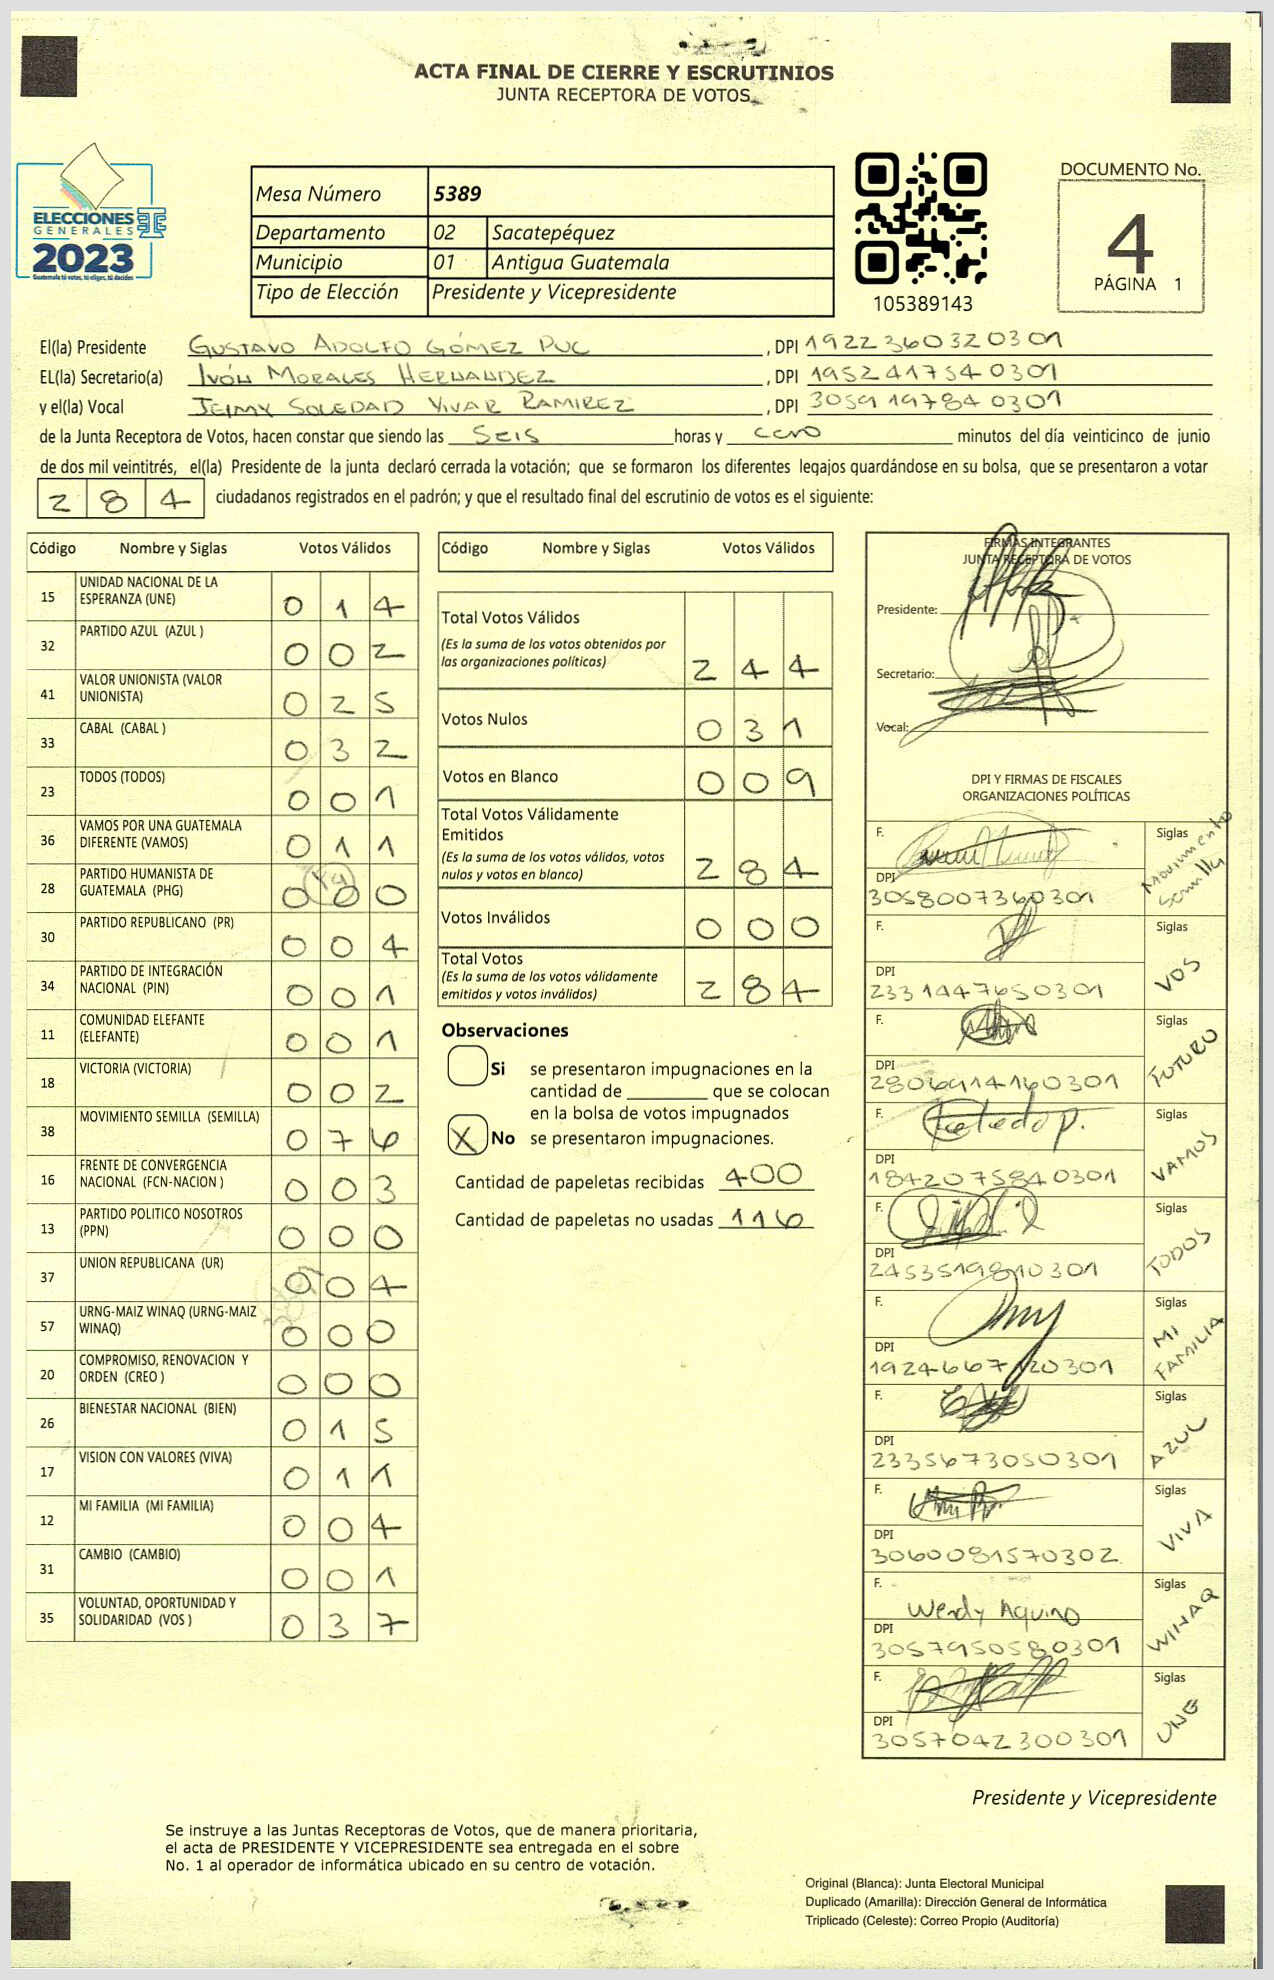 ACTA FINAL DE CIERRE Y ESCRUTINIOS
JUNTA RECEPTORA DE VOTOS
ELECCIONES
GENERALES
2023
Guatemala tú votas, tú eliges, tú decides
Mesa Número 5389
Departamento 02 Sacatepéquez
Municipio 01 Antigua Guatemala
Tipo de Elección Presidente y Vicepresidente
105389143
DOCUMENTO No.
4
PÁGINA 1
El(la) Presidente GUSTAVO ADOLFO GÓMEZ PUC, DPI 1922360320301
EL(la) Secretario(a) IVÓN MORALES HERNANDEZ, DPI 1952417540301
y el(la) Vocal JEIMY SOLEDAD VIVAR RAMIREZ, DPI 3059197840301
de la Junta Receptora de Votos, hacen constar que siendo las SEIS horas y cero minutos del día veinticinco de junio
de dos mil veintitrés, el(la) Presidente de la junta declaró cerrada la votación; que se formaron los diferentes legajos guardándose en su bolsa, que se presentaron a votar
284 ciudadanos registrados en el padrón; y que el resultado final del escrutinio de votos es el siguiente:
Código Nombre y Siglas Votos Válidos
15 UNIDAD NACIONAL DE LA ESPERANZA (UNE) 014
32 PARTIDO AZUL (AZUL ) 002
41 VALOR UNIONISTA (VALOR UNIONISTA) 025
33 CABAL (CABAL ) 032
23 TODOS (TODOS) 001
36 VAMOS POR UNA GUATEMALA DIFERENTE (VAMOS) 011
28 PARTIDO HUMANISTA DE GUATEMALA (PHG) 000
30 PARTIDO REPUBLICANO (PR) 004
34 PARTIDO DE INTEGRACIÓN NACIONAL (PIN) 001
11 COMUNIDAD ELEFANTE (ELEFANTE) 001
18 VICTORIA (VICTORIA) 002
38 MOVIMIENTO SEMILLA (SEMILLA) 076
16 FRENTE DE CONVERGENCIA NACIONAL (FCN-NACION ) 003
13 PARTIDO POLITICO NOSOTROS (PPN) 000
37 UNION REPUBLICANA (UR) 004
57 URNG-MAIZ WINAQ (URNG-MAIZ WINAQ) 000
20 COMPROMISO, RENOVACION Y ORDEN (CREO ) 000
26 BIENESTAR NACIONAL (BIEN) 015
17 VISION CON VALORES (VIVA) 011
12 MI FAMILIA (MI FAMILIA) 004
31 CAMBIO (CAMBIO) 001
35 VOLUNTAD, OPORTUNIDAD Y SOLIDARIDAD (VOS ) 037
Código Nombre y Siglas Votos Válidos
Total Votos Válidos 244
(Es la suma de los votos obtenidos por
las organizaciones políticas)
Votos Nulos 031
Votos en Blanco 009
Total Votos Válidamente
Emitidos 284
(Es la suma de los votos válidos, votos
nulos y votos en blanco)
Votos Inválidos 000
Total Votos 284
(Es la suma de los votos válidamente
emitidos y votos inválidos)
Observaciones
Si se presentaron impugnaciones en la
cantidad de ________ que se colocan
en la bolsa de votos impugnados
X No se presentaron impugnaciones.
Cantidad de papeletas recibidas 400
Cantidad de papeletas no usadas 116
FIRMAS INTEGRANTES
JUNTA RECEPTORA DE VOTOS
Presidente:
Secretario:
Vocal:
DPI Y FIRMAS DE FISCALES
ORGANIZACIONES POLÍTICAS
F. Siglas Movimiento Semilla
DPI 3058007360301
F. Siglas VOS
DPI 2331447650301
F. Siglas FUTURO
DPI 2806914160301
F. Siglas VAMOS
DPI 1842075840301
F. Siglas TODOS
DPI 2453519810301
F. Siglas MI FAMILIA
DPI 1924667120301
F. Siglas AZUL
DPI 2335673050301
F. Siglas VIVA
DPI 3060081570302
F. Wendy Aquino Siglas WINAQ
DPI 3057950580301
F. Siglas UNE
DPI 3057042300301
Presidente y Vicepresidente
Se instruye a las Juntas Receptoras de Votos, que de manera prioritaria,
el acta de PRESIDENTE Y VICEPRESIDENTE sea entregada en el sobre
No. 1 al operador de informática ubicado en su centro de votación.
Original (Blanca): Junta Electoral Municipal
Duplicado (Amarilla): Dirección General de Informática
Triplicado (Celeste): Correo Propio (Auditoría)